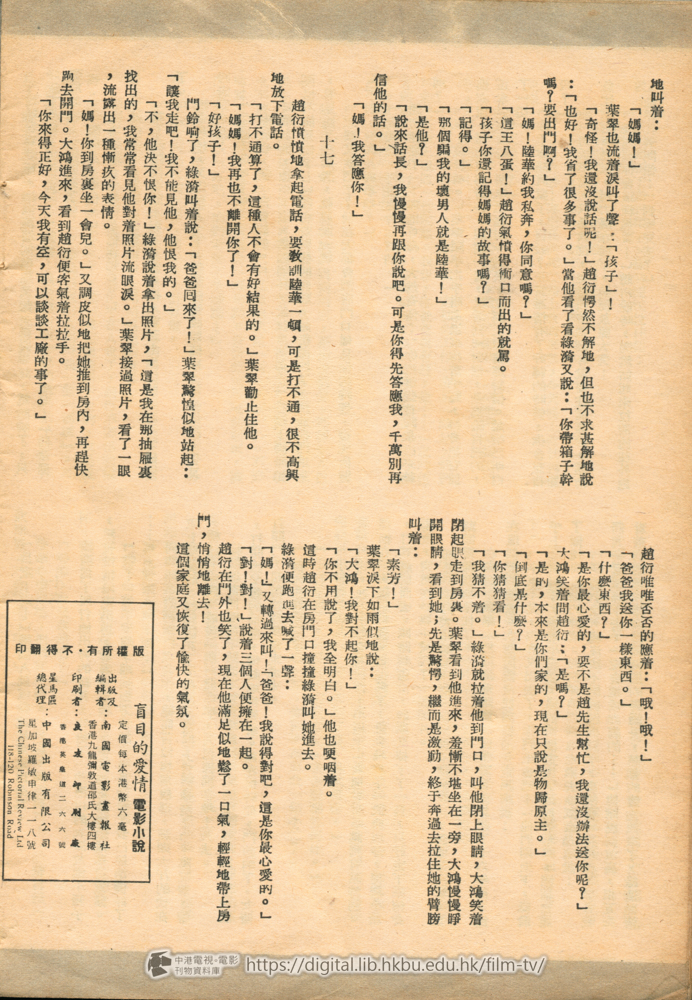 地叫着：
「媽媽！」
葉翠也流着淚叫了聲：「孩子」！
「奇怪！我還沒說話呢！」趙衍愕然不解地，但也不求甚解地說
：「也好！我省了很多事了。」當他看了看綠漪又說：「你帶箱子幹
嗎？要出門啊？」
「媽！陸華約我私奔，你同意嗎？」
「這王八蛋！」趙衍氣憤得衝口而出的就罵。
「孩子你還記得媽媽的故事嗎？」
「記得。」
「那個騙我的壞男人就是陸華！」
「是他？」
「說來話長，我慢慢再跟你說吧。可是你得先答應我，千萬別再
信他的話。」
「媽！我答應你！」
十七
趙衍憤憤地拿起電話，要教訓陸華一頓，可是打不通，很不高興
地放下電話。
「打不通算了，這種人不會有好結果的。」葉翠勸止住他。
「媽媽！我再也不離開你了！」
「好孩子！」
門鈴响了，綠漪叫着說：「爸爸回來了！」葉翠驚惶似地站起：
「讓我走吧！我不能見他，他恨我的。」
「不，他決不恨你！」綠漪說着拿出照片，「這是我在那抽屜裏
找出的，我常常看見他對着照片流眼淚。」葉翠接過照片，看了一眼
，流露出一種慚疚的表情。
「媽！你到房裏坐一會兒。」又調皮似地把她推到房內，再趕快
跑去開門。大鴻進來，看到趙衍便客氣着拉拉手。
「你來得正好，今天我有空，可以談談工廠的事了。」
趙衍唯唯否否的應着：「哦！哦！」
「爸爸我送你一樣東西。」
「什麼東西？」
「是你最心愛的，要不是趙先生幫忙，我還沒辦法送你呢？」
大鴻笑着問趙衍：「是嗎？」
「是的，本來是你們家的，現在只說是物歸原主。」
「倒底是什麼？」
「你猜猜看！」
「我猜不着。」綠漪就拉着他到門口，叫他閉上眼睛，大鴻笑着
閉起眼走到房裏。葉翠看到他進來，羞慚不堪坐在一旁，大鴻慢慢睜
開眼睛，看到她；先是驚愕，繼而是激動，終于奔過去拉住她的臂膀
叫着：
「素芳！」
葉翠淚下如雨似地說：
「大鴻！我對不起你！」
「你不用說了，我全明白。」他也哽咽着。
這時趙衍在房門口撞撞綠漪叫她進去。
綠漪便跑進去喊了一聲：
「媽！」又轉過來叫！「爸爸！我說得對吧，這是你最心愛的。」
「對！對！」說着三個人便擁在一起。
趙衍在門外也笑了，現在他滿足似地鬆了一口氣，輕輕地帶上房
門，悄悄地離去！
這個家庭又恢復了愉快的氣氛。
版權所有・不得翻印
盲目的愛情 電影小說
定價每本港幣六毫
出版及編輯者：南國電影畫報社
香港九龍彌敦道邵氏大樓四樓
印刷者：印刷廠
香港英皇道二六六號
星馬區總代理：中國出版有限公司
星加坡羅敏申律一一八號
The Chinese Pictorial Review Ltd
118-120 Robinson Road
中港電視・電影
刊物資料庫
https://digital.lib.hkbu.edu.hk/film-tv/